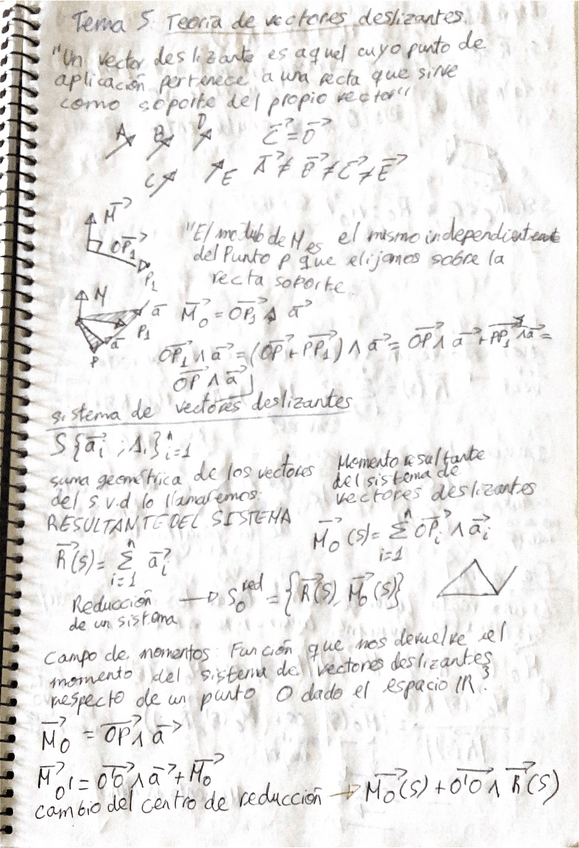 Tema 5. Teoría de vectores deslizantes.
"Un vector deslizante es aquel cuyo punto de
aplicación pertenece a una recta que sirve
como soporte del propio vector"
A B D C⃗ = D⃗
C E A⃗ ≠ B⃗ ≠ C⃗ ≠ E⃗
M⃗
OP₁⃗
P₁
"El modulo de M es el mismo independientemente
del Punto p que elijamos sobre la
recta soporte.
M a⃗ M⃗o = OP₁⃗ ∧ a⃗
P₁
a⃗
P
OP₁⃗ ∧ a⃗ = (OP⃗ + PP₁⃗) ∧ a⃗ = OP⃗ ∧ a⃗ + PP₁⃗ ∧ a⃗ =
OP⃗ ∧ a⃗
sistema de vectores deslizantes
S{a⃗i ; Δi}ⁿi=1
suma geométrica de los vectores
del s.v.d lo llamaremos:
RESULTANTE DEL SISTEMA
R⃗(S) = Σⁿi=1 a⃗i
Momento resultante
del sistema de
vectores deslizantes
M⃗o (S) = Σⁿi=1 OPi⃗ ∧ a⃗i
Reducción
de un sistema
→ So^red = {R⃗(S), M⃗o(S)}
Campo de momentos: Función que nos devuelve el
momento del sistema de vectores deslizantes
respecto de un punto O dado el espacio ℝ³.
M⃗o = OP⃗ ∧ a⃗
M⃗o' = O'O⃗ ∧ a⃗ + M⃗o
cambio del centro de reducción → M⃗o(S) + O'O⃗ ∧ R⃗(S)